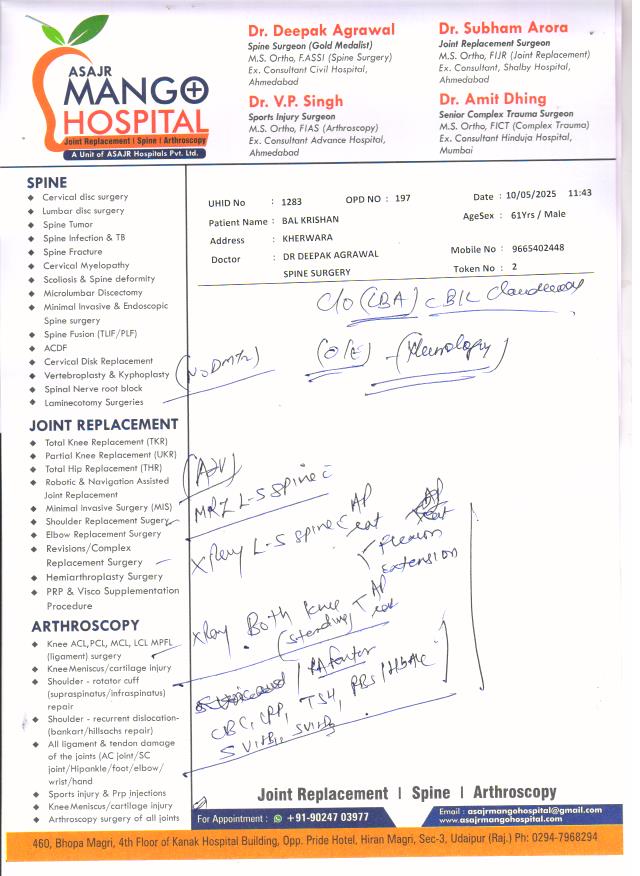 ASAJR
MANGO
HOSPITAL
Joint Replacement | Spine | Arthroscopy
A Unit of ASAJR Hospitals Pvt. Ltd.
Dr. Deepak Agrawal
Spine Surgeon (Gold Medalist)
M.S. Ortho, F.ASSI (Spine Surgery)
Ex. Consultant Civil Hospital,
Ahmedabad
Dr. Subham Arora
Joint Replacement Surgeon
M.S. Ortho, FIJR (Joint Replacement)
Ex. Consultant, Shalby Hospital,
Ahmedabad
Dr. V.P. Singh
Sports Injury Surgeon
M.S. Ortho, FIAS (Arthroscopy)
Ex. Consultant Advance Hospital,
Ahmedabad
Dr. Amit Dhing
Senior Complex Trauma Surgeon
M.S. Ortho, FICT (Complex Trauma)
Ex. Consultant Hinduja Hospital,
Mumbai
SPINE
Cervical disc surgery
Lumbar disc surgery
Spine Tumor
Spine Infection & TB
Spine Fracture
Cervical Myelopathy
Scoliosis & Spine deformity
Microlumbar Discectomy
Minimal Invasive & Endoscopic
Spine surgery
Spine Fusion (TLIF/PLF)
ACDF
Cervical Disk Replacement
Vertebroplasty & Kyphoplasty
Spinal Nerve root block
Laminecotomy Surgeries
JOINT REPLACEMENT
Total Knee Replacement (TKR)
Partial Knee Replacement (UKR)
Total Hip Replacement (THR)
Robotic & Navigation Assisted
Joint Replacement
Minimal invasive Surgery (MIS)
Shoulder Replacement Sugery
Elbow Replacement Surgery
Revisions/Complex
Replacement Surgery
Hemiarthroplasty Surgery
PRP & Visco Supplementation
Procedure
ARTHROSCOPY
Knee ACL,PCL, MCL, LCL MPFL
(ligament) surgery
Knee Meniscus/cartilage injury
Shoulder - rotator cuff
(supraspinatus/infraspinatus)
repair
Shoulder - recurrent dislocation-
(bankart/hillsachs repair)
All ligament & tendon damage
of the joints (AC joint/SC
joint/Hipankle/foot/elbow/
wrist/hand
Sports injury & Prp injections
Knee Meniscus/cartilage injury
Arthroscopy surgery of all joints
UHID No : 1283 OPD NO : 197 Date : 10/05/2025 11:43
Patient Name : BAL KRISHAN AgeSex : 61Yrs / Male
Address : KHERWARA
Doctor : DR DEEPAK AGRAWAL Mobile No : 9665402448
SPINE SURGERY Token No : 2
C/O (LBA) c B/L
(O/E) - (Neurology)
(Adv)
MRI L-S Spine
X Ray L-S Spine AP
Flexion
Extension
X Ray Both Knee AP
(standing)
RA Factor
CBC, CRP, TSH, RBS / HbA1c
S Vit B12, S Vit D3
Joint Replacement | Spine | Arthroscopy
For Appointment : +91-90247 03977
Email : asajrmangohospital@gmail.com
www.asajrmangohospital.com
460, Bhopa Magri, 4th Floor of Kanak Hospital Building, Opp. Pride Hotel, Hiran Magri, Sec-3, Udaipur (Raj.) Ph: 0294-7968294